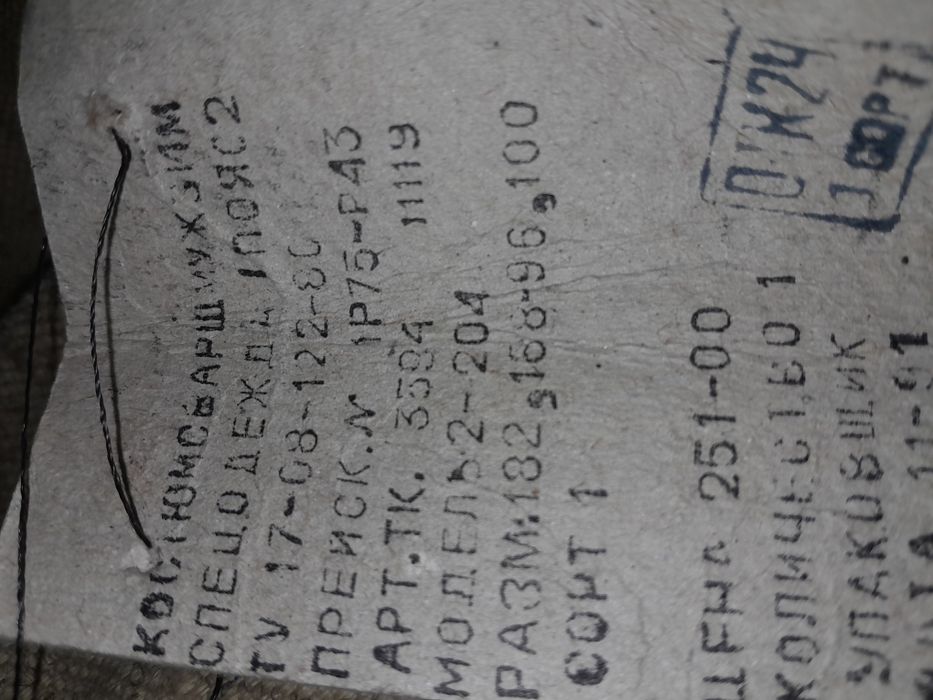 КОСТЮМСВАРЩМУЖЗИМ
СПЕЦОДЕЖДА 1ПОЯС2
ТУ 17-08-122-80
ПРЕЙСК.N 1Р75-Р43
АРТ.ТК. 3594 11119
МОДЕЛЬ2-204
РАЗМ.182,168-96,100
СОРТ 1
ЦЕНА 251-00
КОЛИЧЕСТВО 1
УПАКОВЩИК
ДАТА 11-91
ОТК24
1 СОРТ